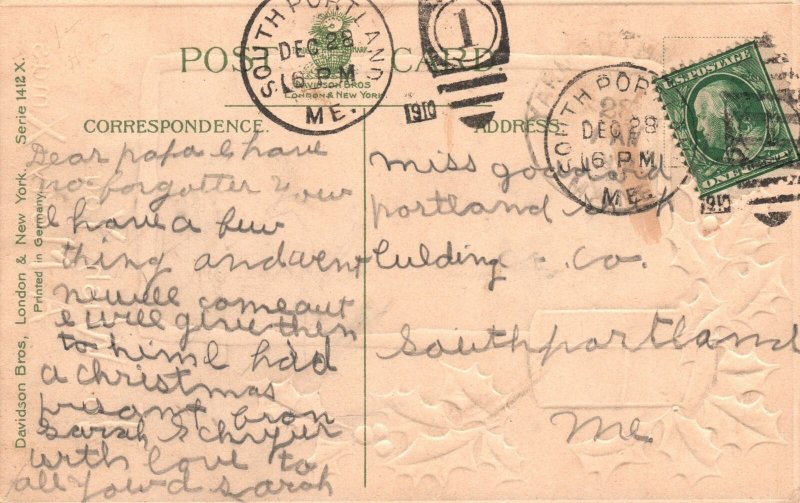 POST CARD
TRADE MARK
DAVIDSON BROS
LONDON & NEW YORK
SOUTH PORTLAND
DEC 28
6 PM
ME.
1910
1
SOUTH PORTLAND
DEC 28
6 PM
ME.
1910
U.S. POSTAGE
ONE CENT
CORRESPONDENCE.
ADDRESS
Dear papa I have
no forgotter you
I have a few
thing and went
newill come out
I will give then
to him I had
a christmas
presant from
Sarah Schryer
with love to
all
sarah
miss goddard
portland
Co.
Southportland
Me.
Davidson Bros., London & New York. Serie 1412 X.
Printed in Germany.